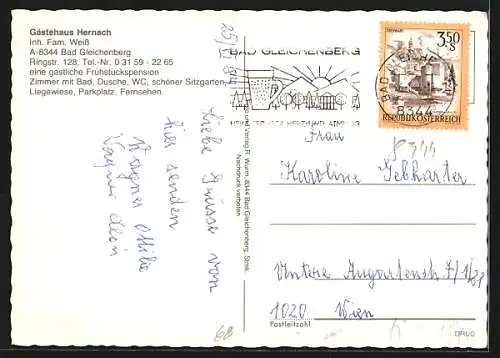 Gästehaus Hernach
Inh. Fam. Weiß
A-8344 Bad Gleichenberg
Ringstr. 128, Tel.-Nr. 0 31 59 - 22 65
eine gastliche Frühstückspension
Zimmer mit Bad, Dusche, WC, schöner Sitzgarten,
Liegewiese, Parkplatz, Fernsehen.
BAD GLEICHENBERG
3.50
S
REPUBLIK ÖSTERREICH
8344
Liebe Grüsse von
hier senden
Wagner Ottilie
und Verlag R. Wurm, 8344 Bad Gleichenberg, Stmk.
Nachdruck verboten
Frau
Karoline Gebharter
Untere Augartenstr. 7/1/21
1020 Wien
Postleitzahl